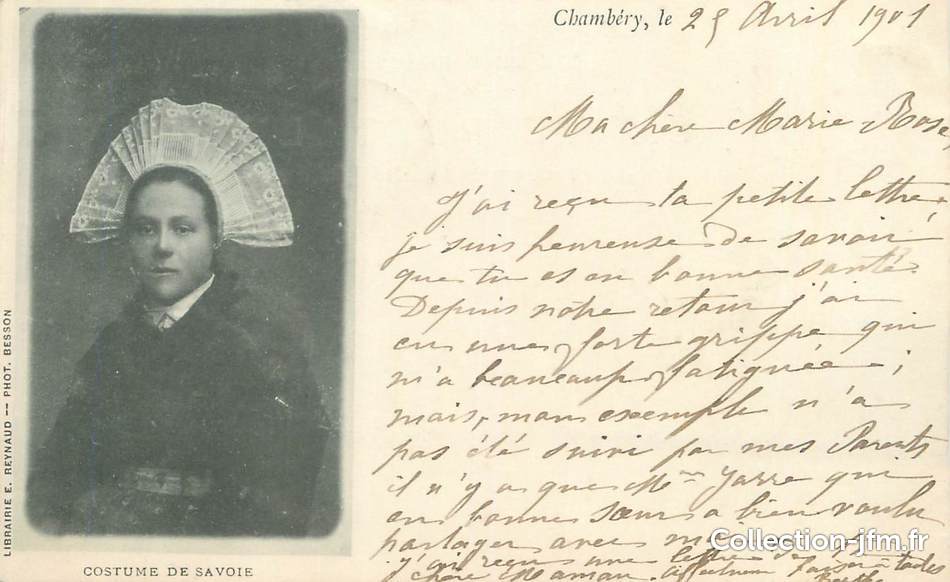 Chambéry, le 25 Avril 1901
Ma chère Marie Rose,
J'ai reçu ta petite lettre,
je suis heureuse de savoir
que tu es en bonne santé.
Depuis notre retour j'ai
eu une forte grippe qui
m'a beaucoup fatiguée ;
mais, mon exemple n'a
pas été suivi par mes Parents
il n'y a que Mme qui
en bonne sœur a bien voulu
partager avec
j'ai reçu une lettre
chère Maman.
LIBRAIRIE E. REYNAUD -- PHOT. BESSON
COSTUME DE SAVOIE
Collection-jfm.fr